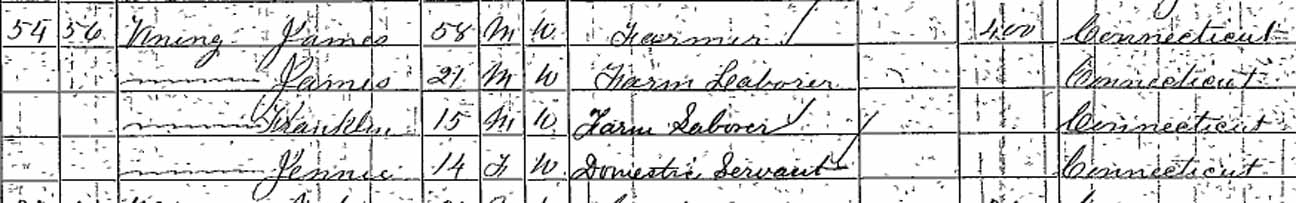 54 56 Vining James 58 M W Farmer 400 Connecticut
James 21 M W Farm Laborer Connecticut
Franklin 15 M W Farm Laborer Connecticut
Jennie 14 F W Domestic Servant Connecticut